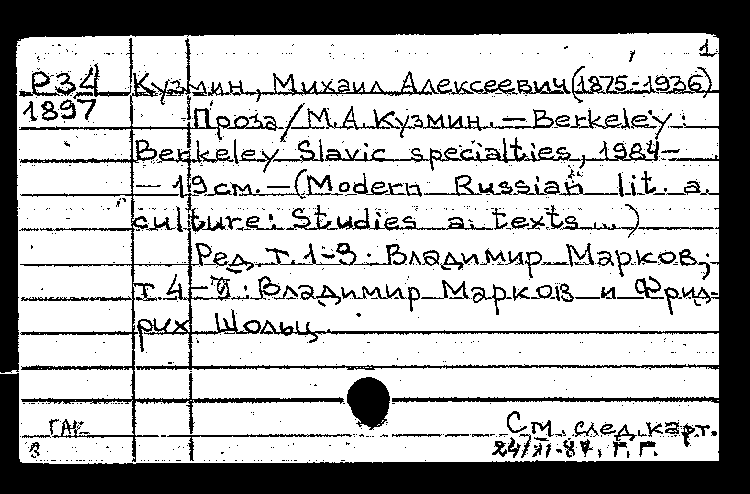 1
Р34 Кузмин, Михаил Алексеевич (1875-1936)
1897 Проза / М.А. Кузмин. — Berkeley:
Berkeley Slavic specialties, 1984-
— 19см. — (Modern Russian lit. a.
culture: Studies a. texts ...)
Ред. т. 1-3: Владимир Марков;
т. 4- : Владимир Марков и Фрид-
рих Шольц.
См. след. карт.
24/XI-87. Г. Г.